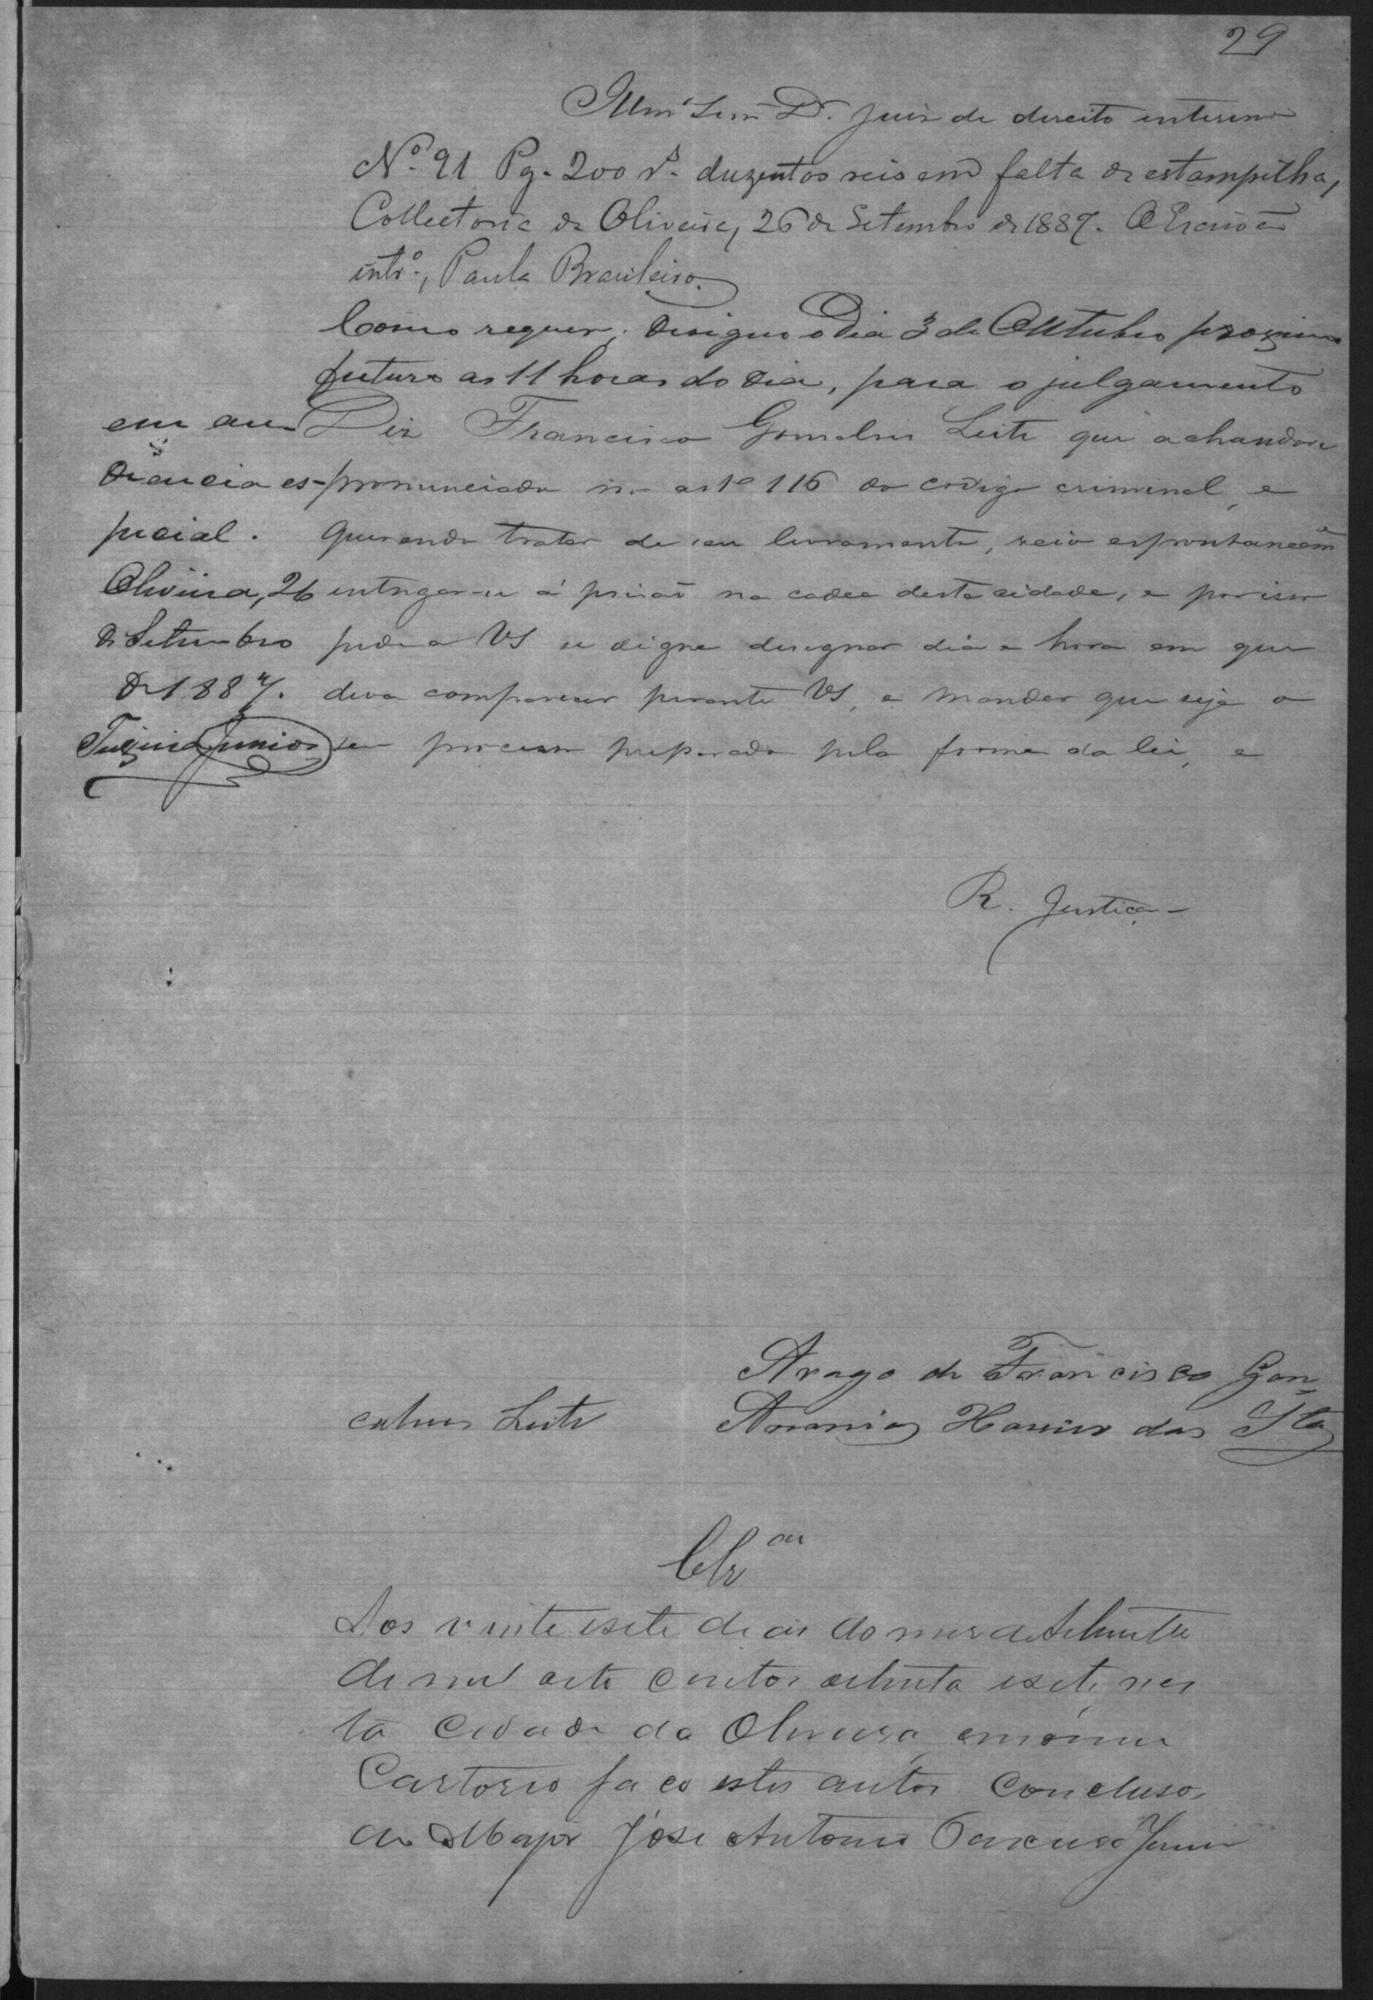 29
Illm.º Snr. Dr. Juiz de direito interino
Nº 91 Pg. 200 rs. duzentos reis em falta de estampilha,
Collectoria da Oliveira, 26 de Setembro de 1887. O Escrivão
intrº, Paula Brasileiro.
Como requer; designo o dia 3 de Outubro proximo
futuro as 11 horas do dia, para o julgamento
em au
diencia es-
pecial.
Oliveira, 26
de Setembro
de 1887.
Teixeira Junior
Diz Francisco Gonsalves Leite que achandose
pronunciado no artº 116 do codigo criminal, e
querendo tratar de seu livramento, veio espontaneamᵉ
entregar-se á prisão na cadea desta cidade, e por isso
pede a VS se digne designar dia e hora em que
deva comparecer perante VS, e mandar que seja o
seu processo preparado pela forma da lei, e
R. Justiça
Arogo de Francisco Gon
calves Leite Ananias Xavier das
Clsão
Aos vinte e sete dias do mes de Setembro
de mil oito centos oitenta e sete nes
ta cidade da Oliveira, em o meu
Cartorio faço estes autos conclusos
ao Major José Antonio Teixeira Junior